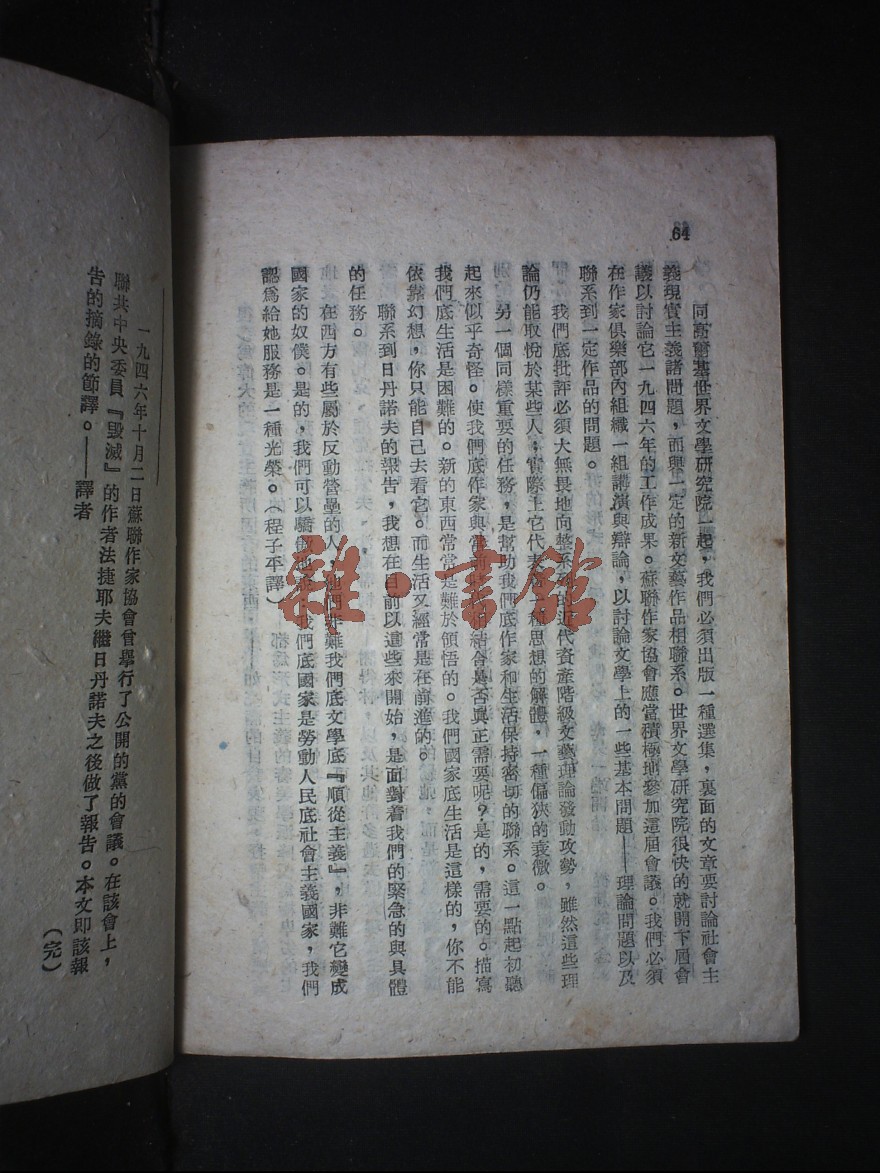 64
同高爾基世界文學研究院一起，我們必須出版一種選集，裏面的文章要討論社會主
義現實主義諸問題，而與一定的新文藝作品相聯系。世界文學研究院很快的就開下屆會
議以討論它一九四六年的工作成果。蘇聯作家協會應當積極地參加這屆會議。我們必須
在作家俱樂部內組織一組講演與辯論，以討論文學上的一些基本問題——理論問題以及
聯系到一定作品的問題。
我們底批評必須大無畏地向整系列的近代資產階級文藝理論發動攻勢，雖然這些理
論仍能取悅於某些人；實際上它代表着一種思想的解體，一種偏狹的衰微。
另一個同樣重要的任務，是幫助我們底作家和生活保持密切的聯系。這一點起初聽
起來似乎奇怪。使我們底作家與當前生活相結合是否真正需要呢？是的，需要的。描寫
我們底生活是困難的。新的東西常常是難於領悟的。我們國家底生活是這樣的，你不能
依靠幻想，你只能自己去看它。而生活又經常是在前進的。
聯系到日丹諾夫的報告，我想在目前以這些來開始，是面對着我們的緊急的與具體
的任務。
在西方有些屬於反動營壘的人，他們非難我們底文學底『順從主義』，非難它變成
國家的奴僕。是的，我們可以驕傲地說：我們底國家是勞動人民底社會主義國家，我們
認爲給她服務是一種光榮。（程子平譯）
一九四六年十月二日蘇聯作家協會曾舉行了公開的黨的會議。在該會上，
聯共中央委員『毀滅』的作者法捷耶夫繼日丹諾夫之後做了報告。本文即該報
告的摘錄的節譯。——譯者
（完）
雜·書館